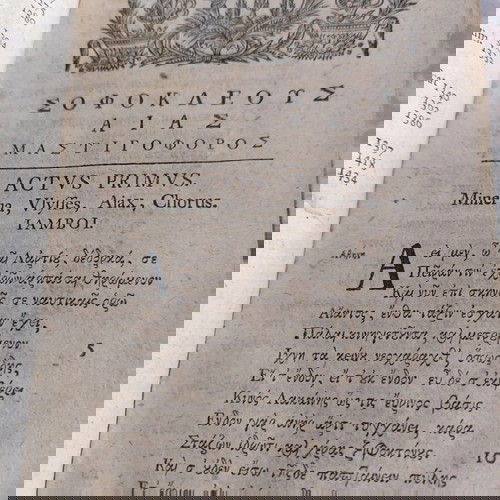 ΣΟΦΟΚΛΕΟΥΣ
ΑΙΑΣ
ΜΑΣΤΙΓΟΦΟΡΟΣ
ACTVS PRIMVS.
Minerva, Vlysses, Aiax, Chorus.
IAMBOI.
Αεὶ μὲν, ὦ παῖ Λαρτίου, δέδορκά σε
Πεῖράν τιν' ἐχθρῶν ἁρπάσαι θηρώμενον·
Καὶ νῦν ἐπὶ σκηναῖς σε ναυτικαῖς ὁρῶ
Αἴαντος, ἔνθα τάξιν ἐσχάτην ἔχει,
Πάλαι κυνηγετοῦντα καὶ μετρούμενον
5
Ἴχνη τὰ κείνου νεοχάραχθ', ὅπως
Εἴτ' ἔνδον, εἴτ' οὐκ ἔνδον. εὖ δέ σ' ἐκφέρει
Κυνὸς Λακαίνης ὥς τις εὔρινος βάσις.
Ἔνδον γὰρ ἁνὴρ ἄρτι τυγχάνει, κάρα
Στάζων ἱδρῶτι καὶ χέρας ξιφοκτόνους.
10
Καί σ' οὐδὲν εἴσω τῆσδε παπταίνειν πύλης